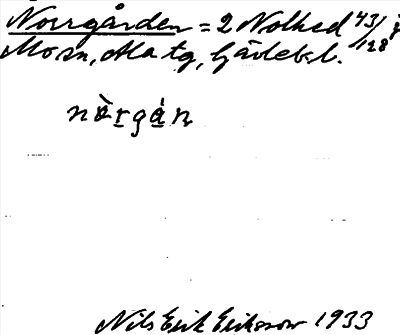 Norrgården = 2 Nolhed 43/128
Mo sn, Ala tg, Gävlebl.
nòrgán
Nils Erik Eriksson 1933